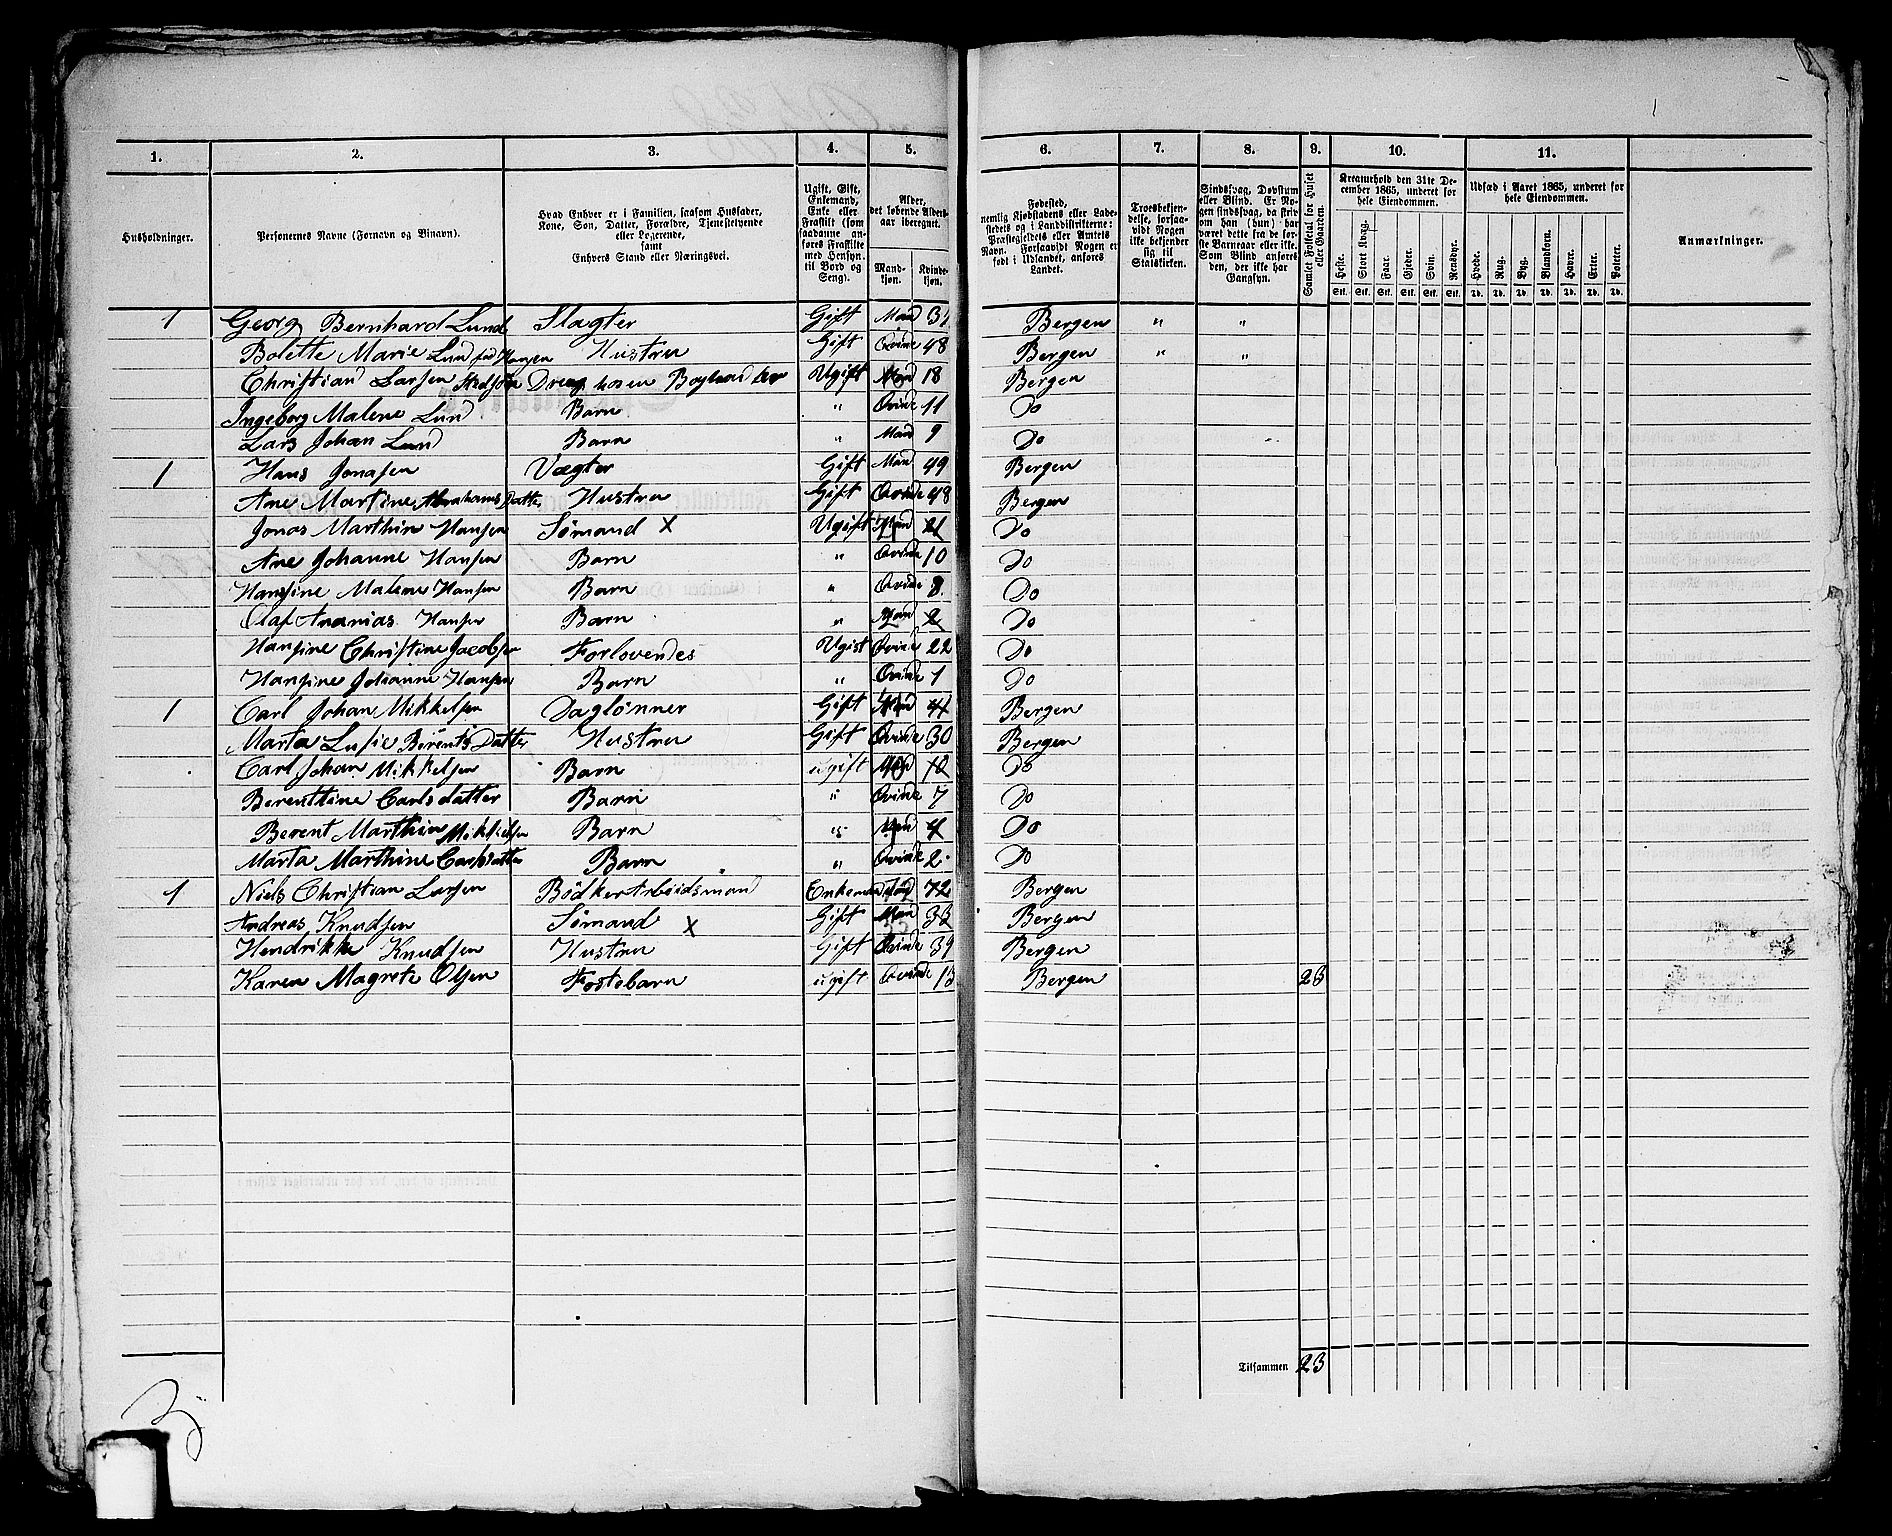 1. 2. 3. 4. 5. 6. 7. 8. 9. 10. 11.
Husholdninger.
Personernes Navne (Fornavn og Binavn).
Hvad Enhver er i Familien, saasom Husfader,
Kone, Søn, Datter, Forældre, Tjenestetyende
eller Logerende,
samt
Enhvers Stand eller Næringsvei.
Ugift, Gift,
Enkemand,
Enke eller
Fraskilt (som
saadanne an-
føres Fraskilte
med Hensyn
til Bord og
Seng).
Alder,
det løbende Alders-
aar iberegnet.
Mand-
kjøn.
Kvinde-
kjøn.
Fødested,
nemlig Kjøbstadens eller Lade-
stedets og i Landdistrikterne:
Præstegjeldets eller Amtets
Navn. Forsaavidt Nogen er
født i Udlandet, anføres
Landet.
Troesbekjen-
delse, forsaa-
vidt Nogen
ikke bekjender
sig til
Statskirken.
Sindssvag, Døvstum
eller Blind. Er No-
gen sindssvag, da hvis
han (hun) har
været dette fra de før-
ste Barneaar eller ikke.
Som Blind anføres
den, der ikke har
Gangsyn.
Samlet Folketal for Huset
eller Gaarden.
Kreaturhold den 31te De-
cember 1865, underet for
hele Eiendommen.
Heste. Stort Kvæg. Faar. Gjeder. Svin. Rensdyr.
Stk. Stk. Stk. Stk. Stk. Stk.
Udsæd i Aaret 1865, underet for
hele Eiendommen.
Hvede. Rug. Byg. Blandkorn. Havre. Erter. Poteter.
Td. Td. Td. Td. Td. Td. Td.
Anmærkninger.
1 Georg Bernhard Lund Slagter Gift Mand Bergen " "
Bolette Marie Lund Hansen Hustru Gift Qvinde 48 Bergen " "
Christian Larsen Ugift Mand 18 Bergen
Ingeborg Malene Lund Barn " Qvinde 11 Do
Lars Johan Lund Barn " Mand 9 Do
1 Hans Jonasen Vægter Gift Mand 49 Bergen
Ane Martine Abrahams Datter Hustru Gift Qvinde 48 Bergen
Jonas Marthin Hansen Sømand X Ugift Mand 21 Do
Ane Johanne Hansen Barn " Qvinde 10 Do
Hansine Malene Hansen Barn " Qvinde 8 Do
Olaf Ananias Hansen Barn " Mand 2 Do
Hansine Christine Jacobsen Forlovendes Ugist Qvinde 22 Do
Hansine Johanne Hansen Barn " Qvinde 1 Do
1 Carl Johan Mikkelsen Daglønner Gift Mand 41 Bergen
Marta Lusie Berents Datter Hustru Gift Qvinde 30 Bergen
Carl Johan Mikkelsen Barn ugift Mand 10 Do
Berenttine Carlsdatter Barn " Qvinde 7 Do
Berent Marthin Mikkelsen Barn " Man 4 Do
Marta Marthine Carlsdatter Barn " Qvinde 2 Do
1 Niels Christian Larsen Bödker Arbeidsmand Enkemand 72 Bergen
Andreas Knudsen Sømand X Gift Man 33 Bergen
Hendrikke Knudsen Hustru Gift Qvinde 39 Bergen
Karen Magrete Olsen Fostebarn ugift Qvinde 13 Bergen 23
Tilsammen 23